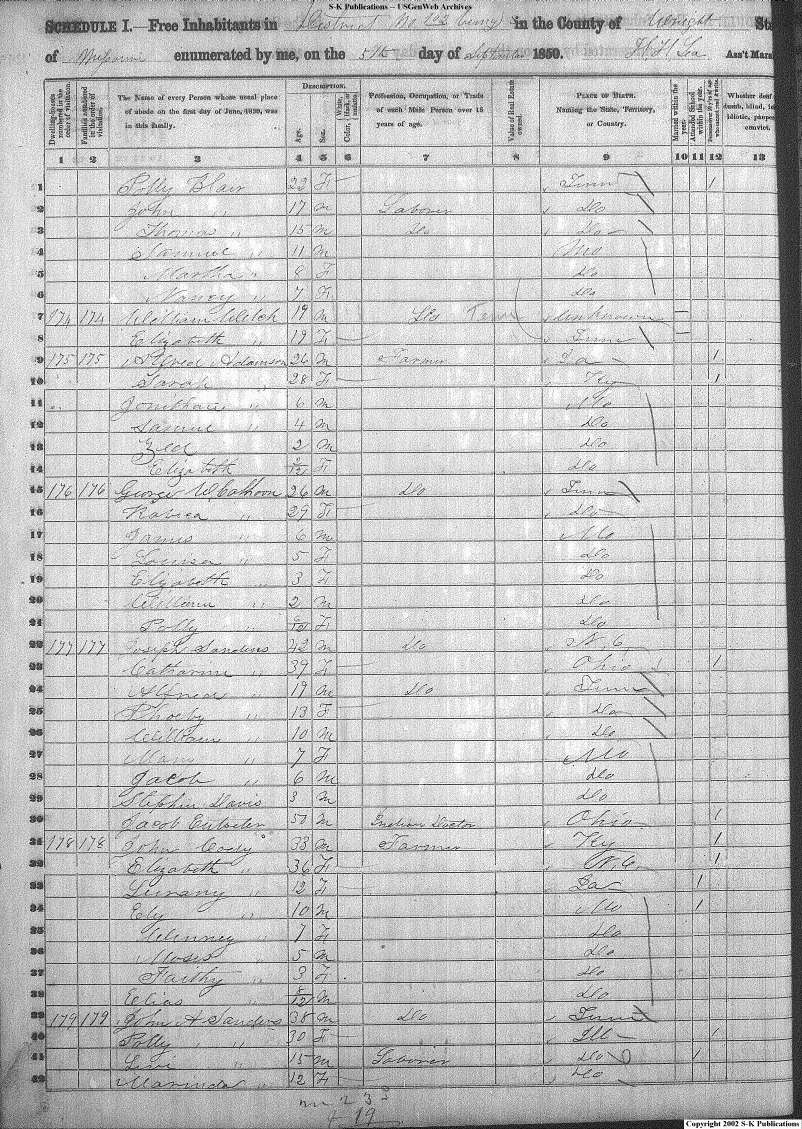 S-K Publications – USGenWeb Archives
SCHEDULE I.—Free Inhabitants in District No in the County of Wright Sta
of Missouri enumerated by me, on the 5th day of September 1850. Ass't Marsh
Dwelling-houses numbered in the order of visitation.
Families numbered in the order of visitation.
The Name of every Person whose usual place of abode on the first day of June, 1850, was in this family.
DESCRIPTION.
Age.
Sex.
Color, White, black, or mulatto.
Profession, Occupation, or Trade of each Male Person over 15 years of age.
Value of Real Estate owned.
PLACE OF BIRTH. Naming the State, Territory, or Country.
Married within the year.
Attended School within the year.
Whether deaf dumb, blind, idiotic, convict.
1 2 3 4 5 6 7 8 9 10 11 12 13
1 Polly Blair 22 F Tenn 1
2 John " 17 M Laborer do
3 Thomas " 15 M do do
4 Samuel " 11 M Mo
5 Martha " 8 F do
6 Nancy " 7 F do
7 174 174 William Welch 19 M do Tenn unknown
8 Elizabeth " 19 F Tenn
9 175 175 Alfred Adamson 26 M Farmer 1
10 Sarah " 28 F Ky 1
11 Jonithan " 6 M Mo
12 Samuel " 4 M do
13 2 M do
14 Elizabeth /12 F do
15 176 176 George W Calhoon 26 M do Tenn
16 " 29 F do
17 James " 6 M Mo
18 Louisa " 5 F do
19 Elizabeth " 3 F do
20 William " 2 M do
21 Polly " /12 F do
22 177 177 Joseph Sanders 42 M do N C
23 Catharine " 39 F Ohio 1
24 Alfred " 19 M do Tenn
25 Phoeby " 13 F do
26 William " 10 M do
27 Mary " 7 F Mo
28 Jacob " 6 M do
29 Stephen Davis 3 M do
30 Jacob 50 M Indian Doctor Ohio 1
31 178 178 John Cody 33 M Farmer Ky 1
32 Elizabeth " 36 F N C 1
33 " 12 F 1
34 Ely " 10 M Mo 1
35 " 7 F do
36 Moses " 5 M do
37 Faithy " 3 F do
38 Elias " 8/12 M do
39 179 179 John A Sanders 38 M do Tenn
40 Polly " 30 F Ill 1
41 Levi " 15 M Laborer do 1
42 Marinda " 12 F do
23
19
Copyright 2002 S-K Publications